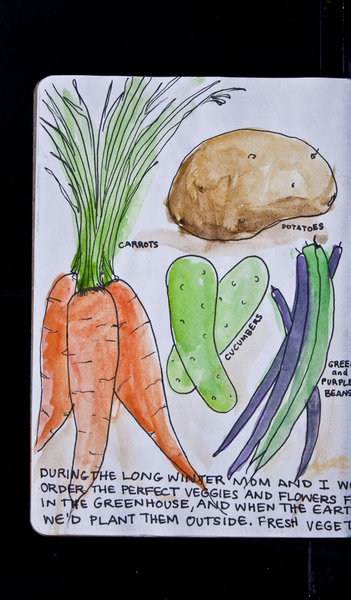 POTATOES
CARROTS
CUCUMBERS
and
PURPLE
BEANS
DURING THE LONG WINTER MOM AND I
ORDER THE PERFECT VEGGIES AND FLOWERS
IN THE GREENHOUSE, AND WHEN THE
WE'D PLANT THEM OUTSIDE. FRESH